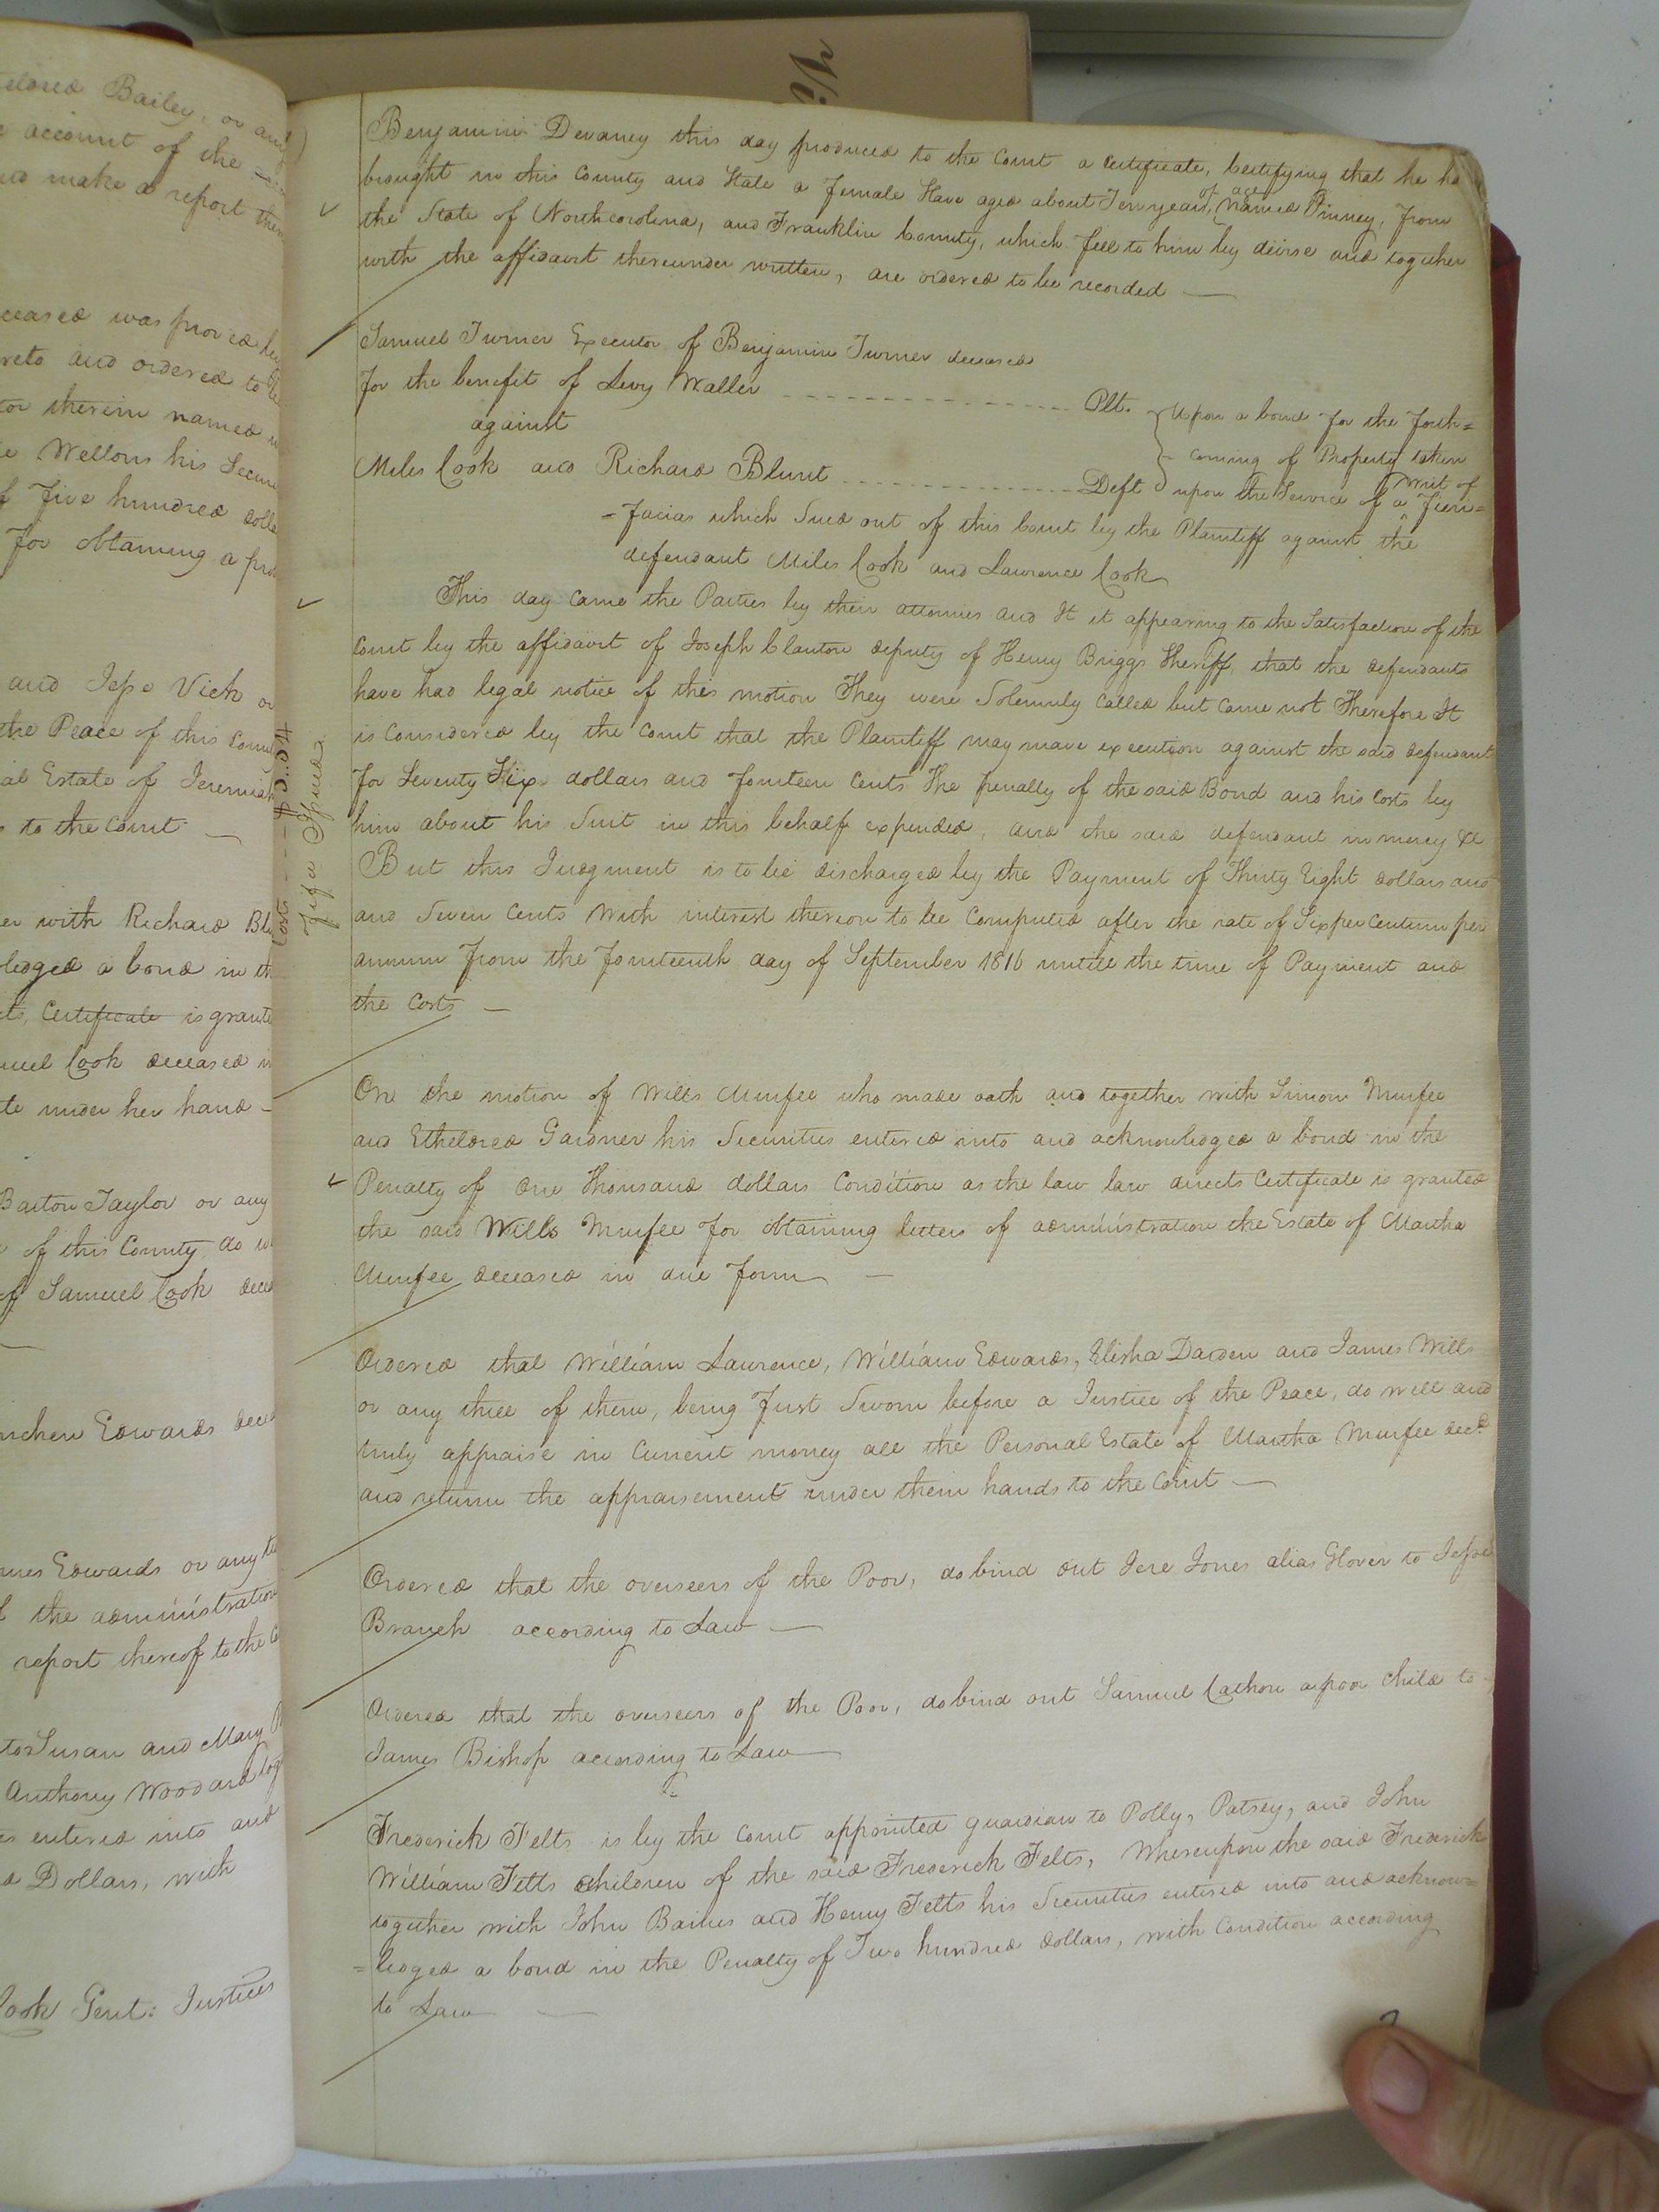 eldred Bailey, or any
account of the
make a report
ceased was proved
and ordered to be
therein named
Wellons his
Five hundred
For obtaining a
and Jesse Vick
the Peace of this
Estate of Jeremiah
to the Court
with Richard
ledged a bond in
Certificate is
Cook deceased
under her hand
Barton Taylor or any
of this County do
of Samuel Cook
Edwards
Edwards or any
the administration
report thereof to the
Susan and Mary
Anthony Woodard
entered into and
Dollars, with
Cook Gent: Justices
Benjamin Devaney this day produced to the Court a Certificate, Certifying that he
brought in this County and State a female Slave aged about Ten years, of age named Pinney, from
the State of Northcorolina, and Franklin County, which fell to him by divise and together
with the affidavit thereunder written, are ordered to be recorded —
Samuel Turner Executor of Benjamin Turner deceased
for the benefit of Levy Waller Plt.
against
Miles Cook and Richard Blunt Deft
Upon a bond for the forth=
coming of Property taken
upon the Service of a Writ of Fieri=
=Facias which Sued out of this Court by the Plaintiff against the
defendant Miles Cook and Lawrence Cook
Cost
Fi fa Issued
This day came the Parties by their attornies and It it appearing to the Satisfaction of the
Court by the affidavit of Joseph Clanton deputy of Henry Briggs Sheriff, that the defendants
have had legal notice of this motion They were Solemnly Called but Came not Therefore It
is Considered by the Court that the Plaintiff may mave execution against the said defendant
for Seventy Six dollars and fourteen Cents The penalty of the said Bond and his Costs by
him about his Suit in this behalf expended, and the said defendant in mercy &c
But this Judgment is to be discharged by the Payment of Thirty Eight dollars and
and Seven Cents With interest thereon to be Computed after the rate of Six per Centum per
annum from the fourteenth day of September 1816 untill the time of Payment and
the Costs —
On the motion of Wills Murfee who made oath and together with Simon Murfee
and Etheldred Gardner his Securities entered into and acknowledged a bond in the
Penalty of One Thousand dollars Condition as the law law directs Certificate is granted
the said Wills Murfee for obtaining letters of administration the Estate of Martha
Murfee deceased in due form —
Ordered that William Lawrence, William Edwards, Elisha Darden and James Wills
or any three of them, being first Sworn before a Justice of the Peace, do well and
truly appraise in Current money all the Personal Estate of Martha Murfee decd
and return the appraisement under their hands to the Court —
Ordered that the overseers of the Poor, do bind out Jere Jones alias Glover to Jesse
Branch according to Law —
Ordered that the overseers of the Poor, do bind out Samuel Cathon a poor Child to
James Bishop acording to Law
Frederick Felts is by the Court appointed guardian to Polly, Patsey, and John
William Felts Children of the said Frederick Felts, Whereupon the said Frederick
together with John Baines and Henry Felts his Securities entered into and acknow=
=ledged a bond in the Penalty of Two hundred dollars, with Condition according
to Law —